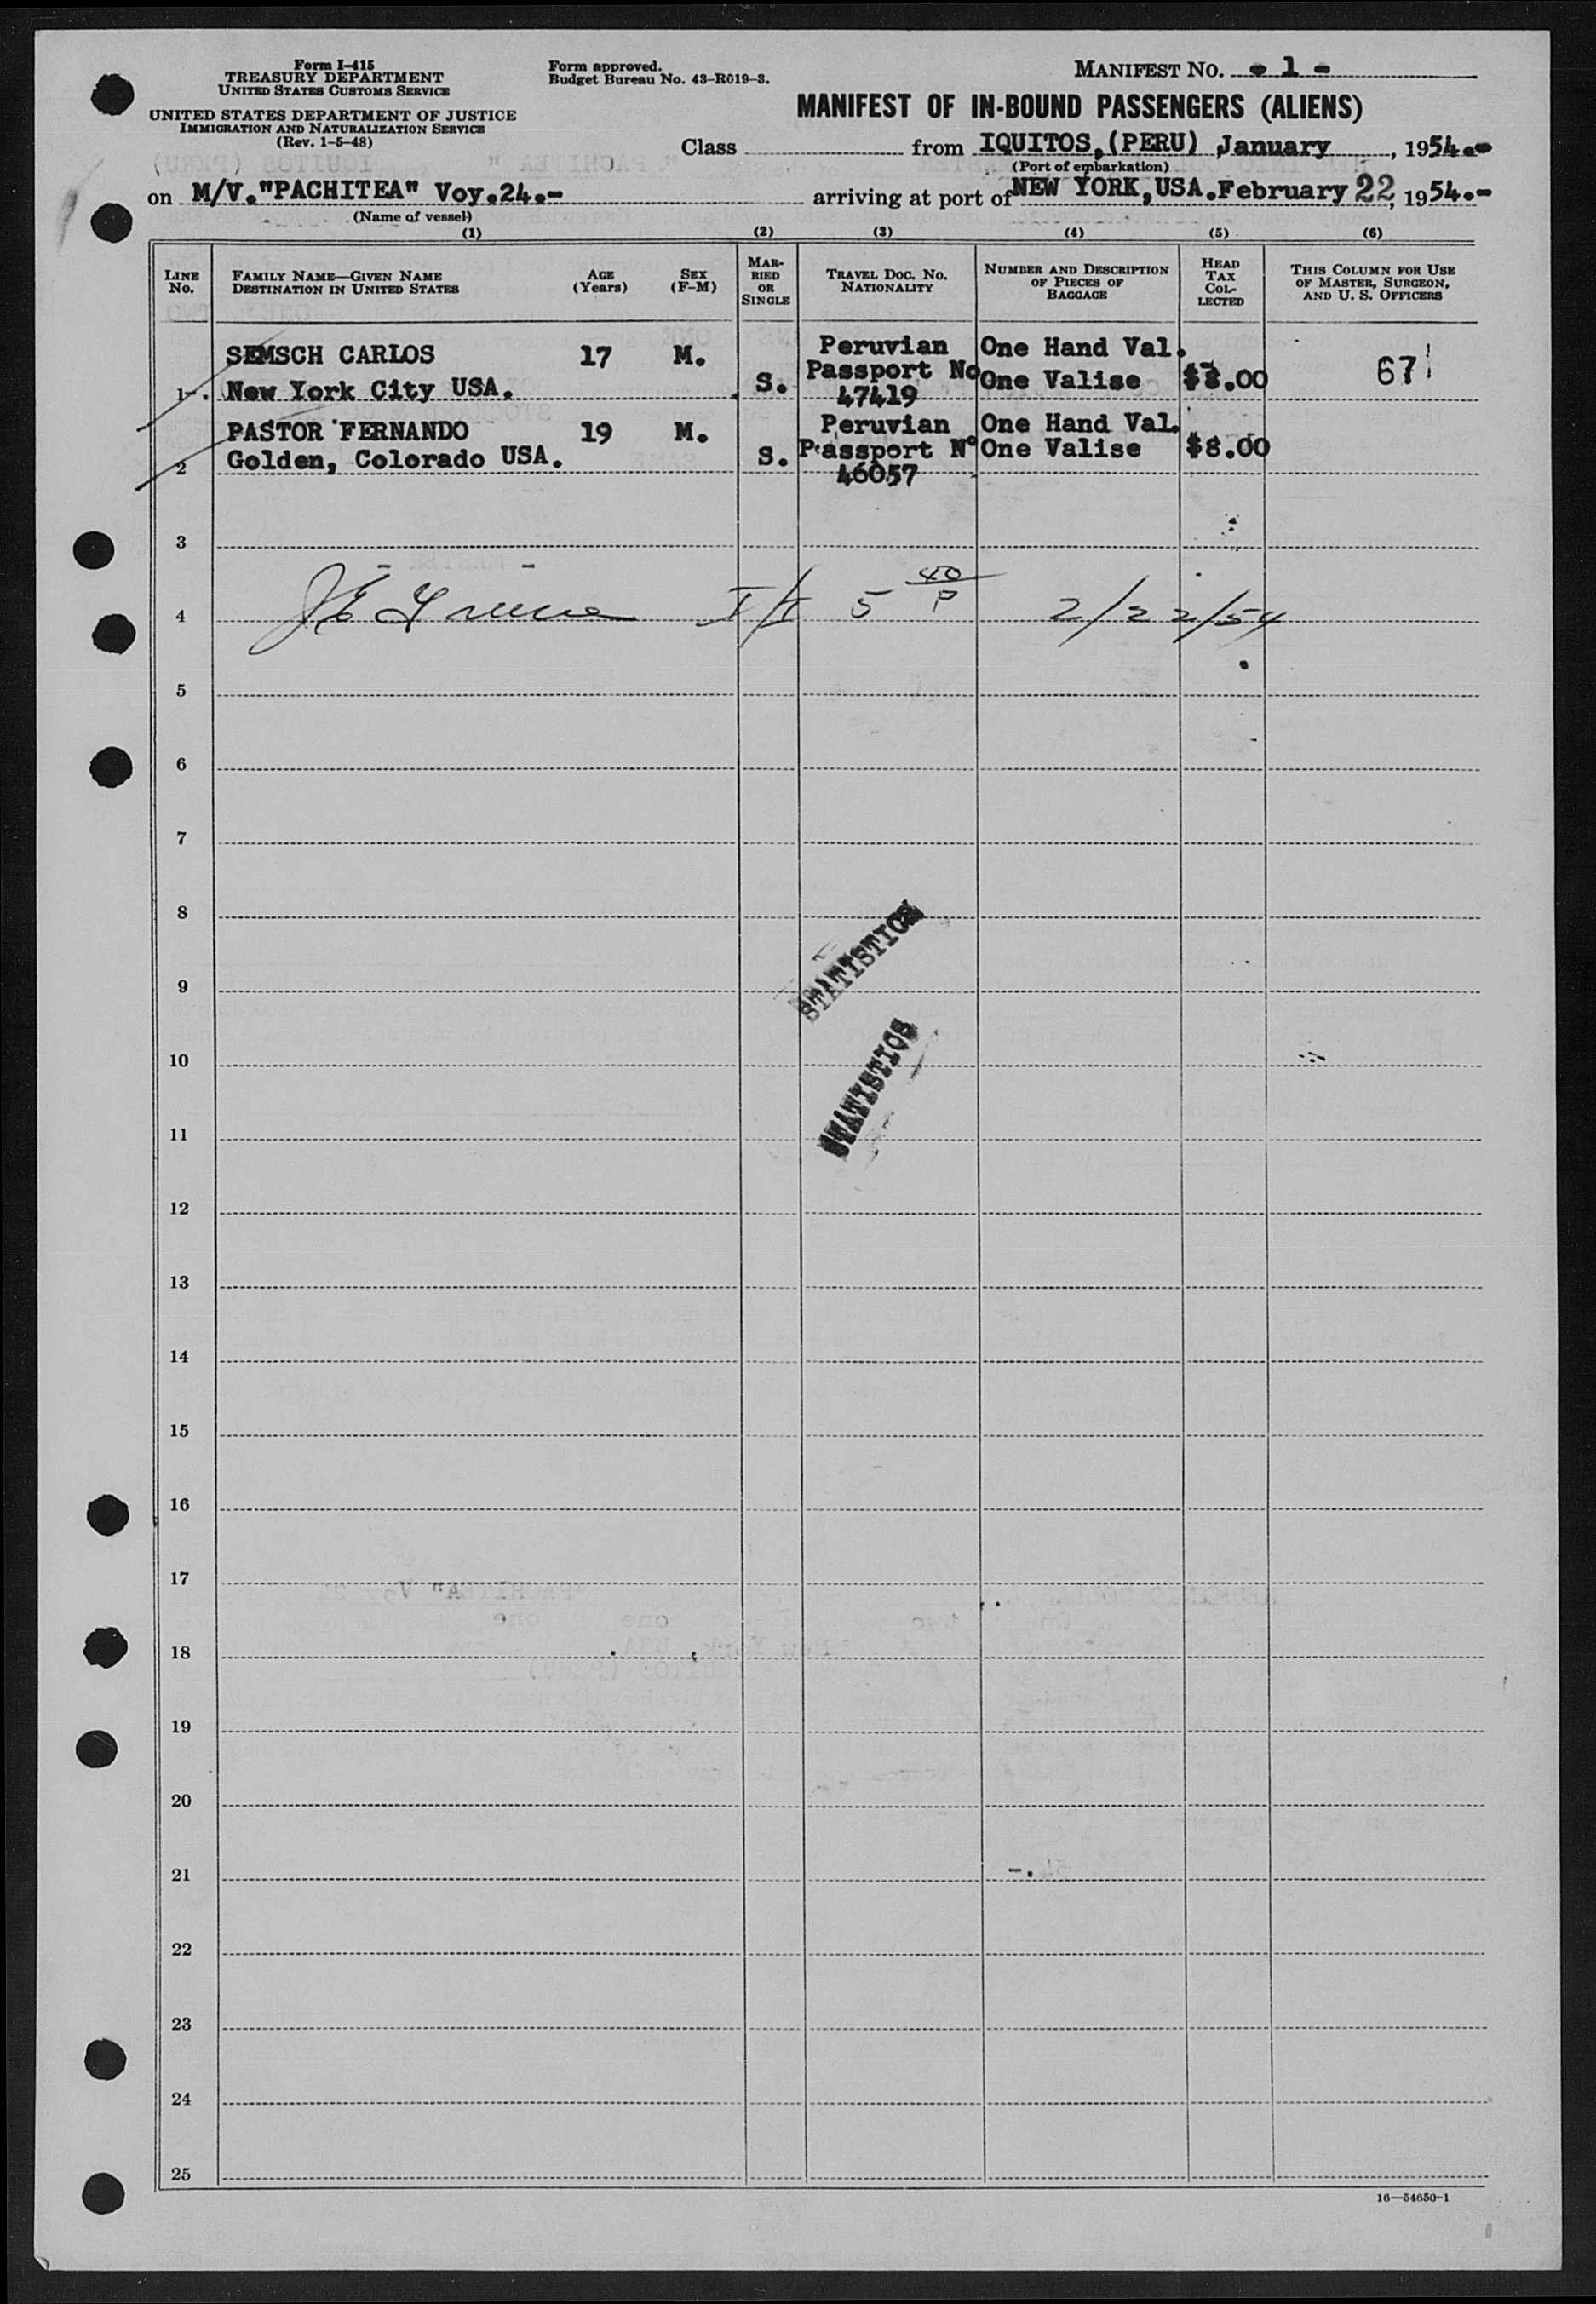 Form I-415
TREASURY DEPARTMENT
UNITED STATES CUSTOMS SERVICE
UNITED STATES DEPARTMENT OF JUSTICE
IMMIGRATION AND NATURALIZATION SERVICE
(Rev. 1-5-48)
Form approved.
Budget Bureau No. 43-R019-3.
MANIFEST NO. - 1 -
MANIFEST OF IN-BOUND PASSENGERS (ALIENS)
Class from IQUITOS,(PERU) ,January , 1954.-
(Port of embarkation)
on M/V."PACHITEA" Voy.24.- arriving at port of NEW YORK,USA.February 22, 1954.-
(Name of vessel)
(1) (2) (3) (4) (5) (6)
LINE No. FAMILY NAME—GIVEN NAME DESTINATION IN UNITED STATES AGE (Years) SEX (F-M) MARRIED OR SINGLE TRAVEL DOC. NO. NATIONALITY NUMBER AND DESCRIPTION OF PIECES OF BAGGAGE HEAD TAX COLLECTED THIS COLUMN FOR USE OF MASTER, SURGEON, AND U. S. OFFICERS
SEMSCH CARLOS 17 M. Peruvian One Hand Val.
1 New York City USA. S. Passport No 47419 One Valise $8.00 67
PASTOR FERNANDO 19 M. Peruvian One Hand Val.
2 Golden, Colorado USA. S. Passport Nº 46057 One Valise $8.00
3
4 I/I 5 40/P 2/22/54
5
6
7
8
STATISTICS
9
10
STATISTICS
11
12
13
14
15
16
17
18
19
20
21
22
23
24
25
16—54650-1